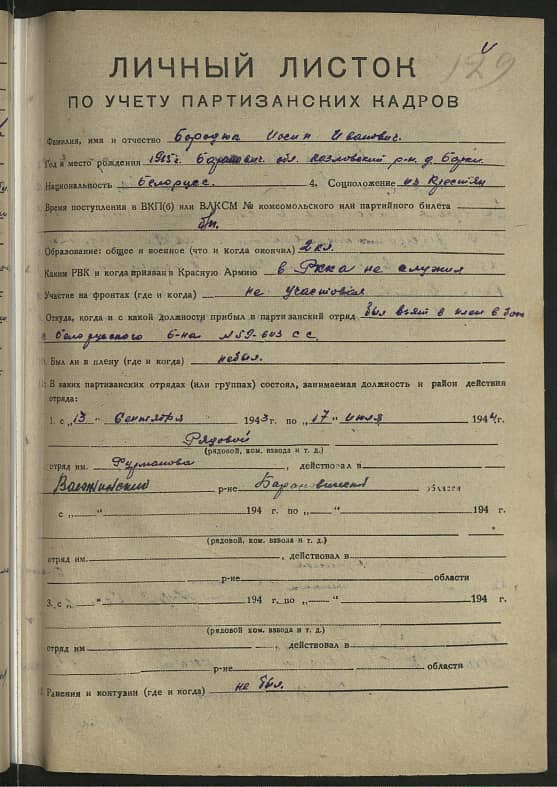 129
ЛИЧНЫЙ ЛИСТОК
ПО УЧЕТУ ПАРТИЗАНСКИХ КАДРОВ
Фамилия, имя и отчество Бородка Иосип Иванович.
Год и место рождения 1925г. Баранович. обл. Козловский р-н. д.
Национальность Белорусс. 4. Соцположение из Крестьян
Время поступления в ВКП(б) или ВЛКСМ № комсомольского или партийного билета
б/п.
Образование: общее и военное (что и когда окончил) 2 кл.
Каким РВК и когда призван в Красную Армию в РККА не служил
Участие на фронтах (где и когда) не участовал
Откуда, когда и с какой должности прибыл в партизанский отряд был взят в плен в бою
с белоруского б-на №59-643 с с.
Был ли в плену (где и когда) небыл.
В каких партизанских отрядах (или группах) состоял, занимаемая должность и район действия
отряда:
1. с „13" Сентября 1943 г. по „17" июля 1944г.
Рядовой
(рядовой, ком. взвода и т. д.)
отряд им. Фурманова, действовал в
р-не Барановичской области
с „ " 194 г. по „ " 194 г.
(рядовой, ком. взвода и т. д.)
отряд им. , действовал в
р-не области
3. с „ " 194 г. по „ " 194 г.
(рядовой, ком. взвода и т. д.)
отряд им , действовал в
р-не области
Ранения и контузии (где и когда) не был.